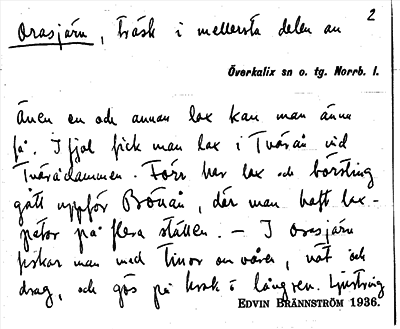 2
Orasjärv, träsk i mellersta delen av
Överkalix sn o. tg. Norrb. l.
Även en och annan lax kan man ännu
få. I fjol fick man lax i Tvärån vid
Tvärådammen. Förr har lax och börsting
gått uppför Brönån, där man haft lax-
pator på flera ställen. — I Orasjärv
fiskar man med tinor om våren, nät och
drag, och gös på krok i långrev. Ljustring
EDVIN BRÄNNSTRÖM 1936.